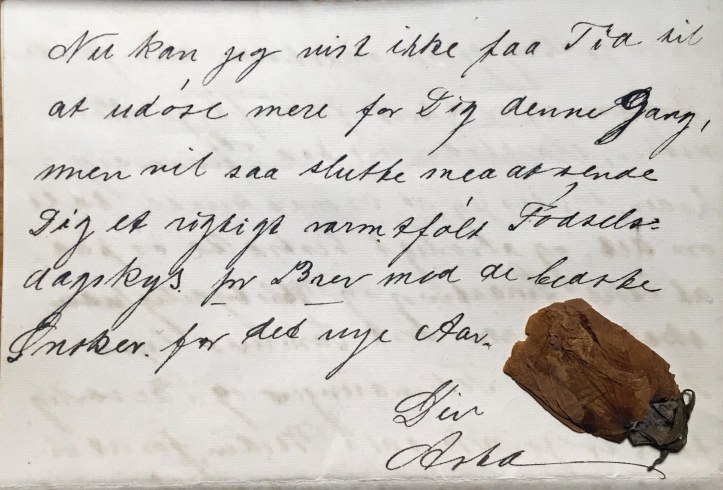 Nu kan jeg vist ikke faa Tid til
at udøse mere for Dig denne Gang,
men vil saa slutte med at sende
Dig et rigtigt varmtfølt Fødsels=
dagskys pr Brev med de bedste
Ønsker for det nye Aar.
Din
Asta